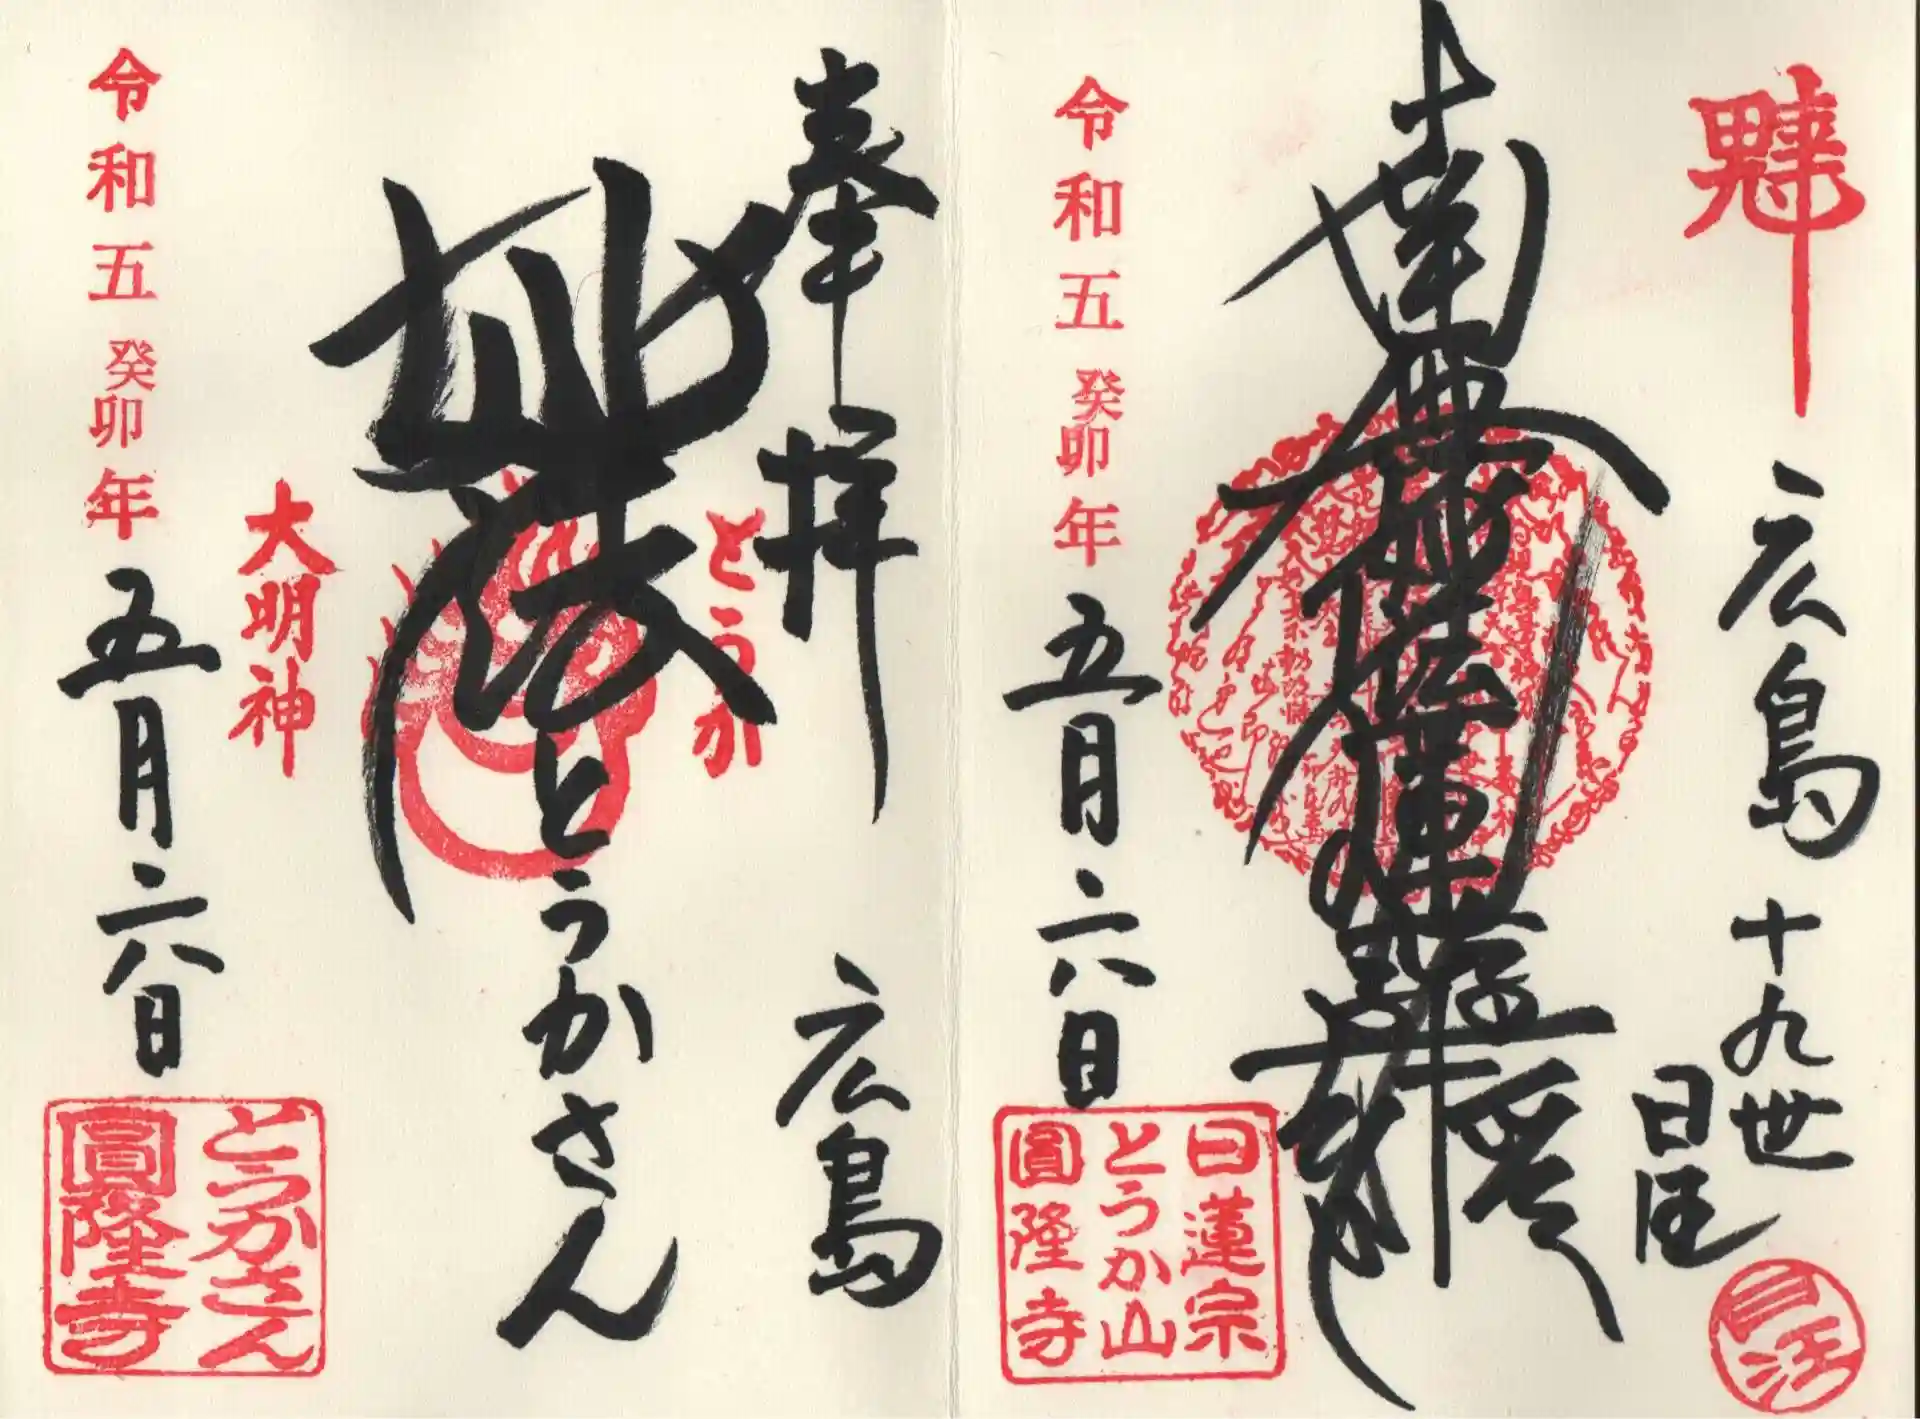 広島
十九世
日
南無妙法蓮華経
令和五癸卯年
五月二六日
日蓮宗
とうか山
圓隆寺
奉拝
広島
とうか
妙法
とうかさん
大明神
令和五癸卯年
五月二六日
とうかさん
圓隆寺